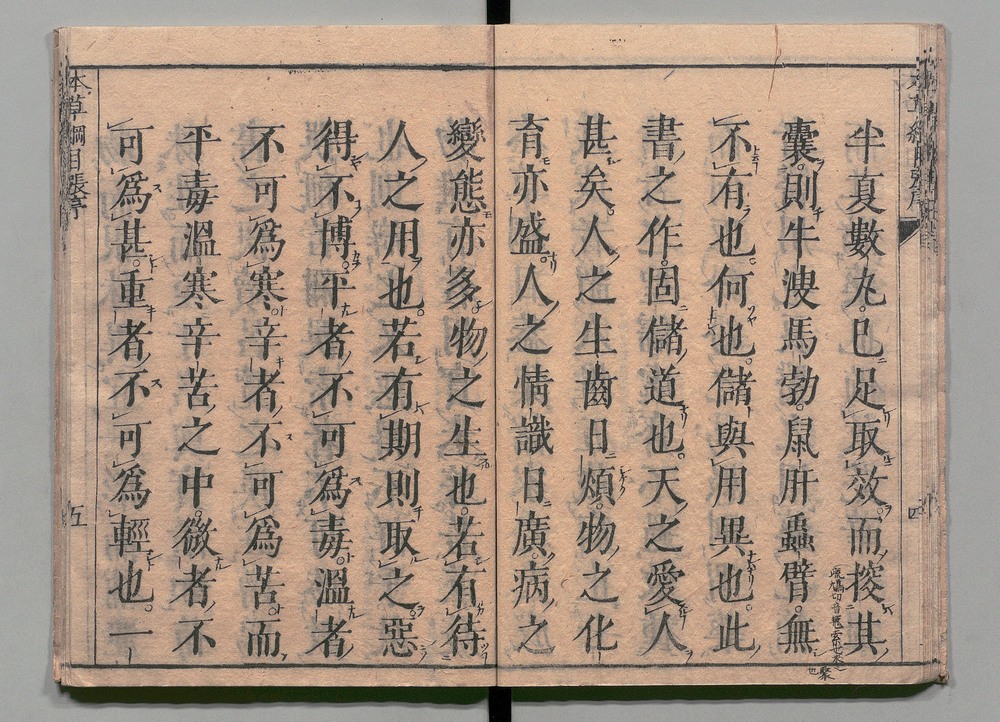 半夏數丸。已足取效而搜其
囊。則牛溲馬勃。鼠肝蟲臂。無
不有也。何也。儲與用異也。此
書之作。固儲道也。天之愛人
甚矣。人之生齒日煩。物之化
育亦盛。人之情識日廣。病之
變態亦多。物之生也。若有待
人之用也。若有期則取之惡
得不博。平者不可爲毒。溫者
不可爲寒。辛者不可爲苦。而
平毒溫寒辛苦之中。微者不
可爲甚。重者不可爲輕也。一
本草綱目張序
五
四